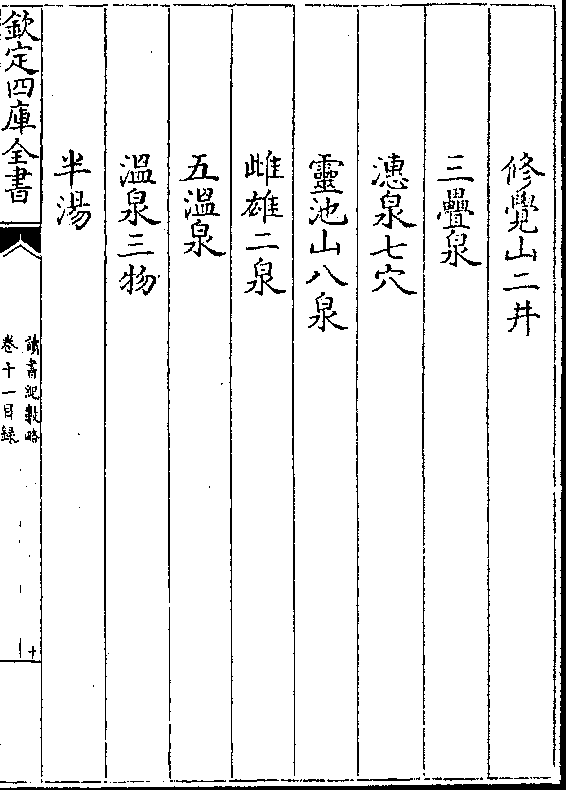 修覺山二井
三疊泉
漶泉七穴
靈池山八泉
雌雄二泉
五溫泉
溫泉三物
半湯
欽定四庫全書
讀書紀數略
卷十一目録
十